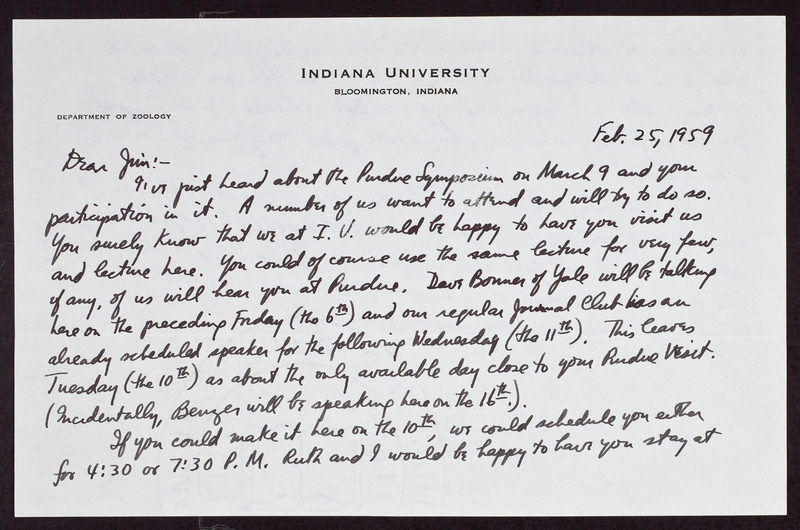 INDIANA UNIVERSITY
BLOOMINGTON, INDIANA
DEPARTMENT OF ZOOLOGY
Feb. 25, 1959
Dear Jim:-
I've just heard about the Purdue Symposium on March 9 and your
participation in it. A number of us want to attend and will try to do so.
You surely know that we at I. U. would be happy to have you visit us
and lecture here. You could of course use the same lecture for very few,
if any, of us will hear you at Purdue. Dave Bonner of Yale will be talking
here on the preceding Friday (the 6th) and our regular Journal Club has an
already scheduled speaker for the following Wednesday (the 11th). This leaves
Tuesday (the 10th) as about the only available day close to your Purdue Visit.
(Incidentally, Benzer will be speaking here on the 16th.)
If you could make it here on the 10th, we could schedule you either
for 4:30 or 7:30 P.M. Ruth and I would be happy to have you stay at